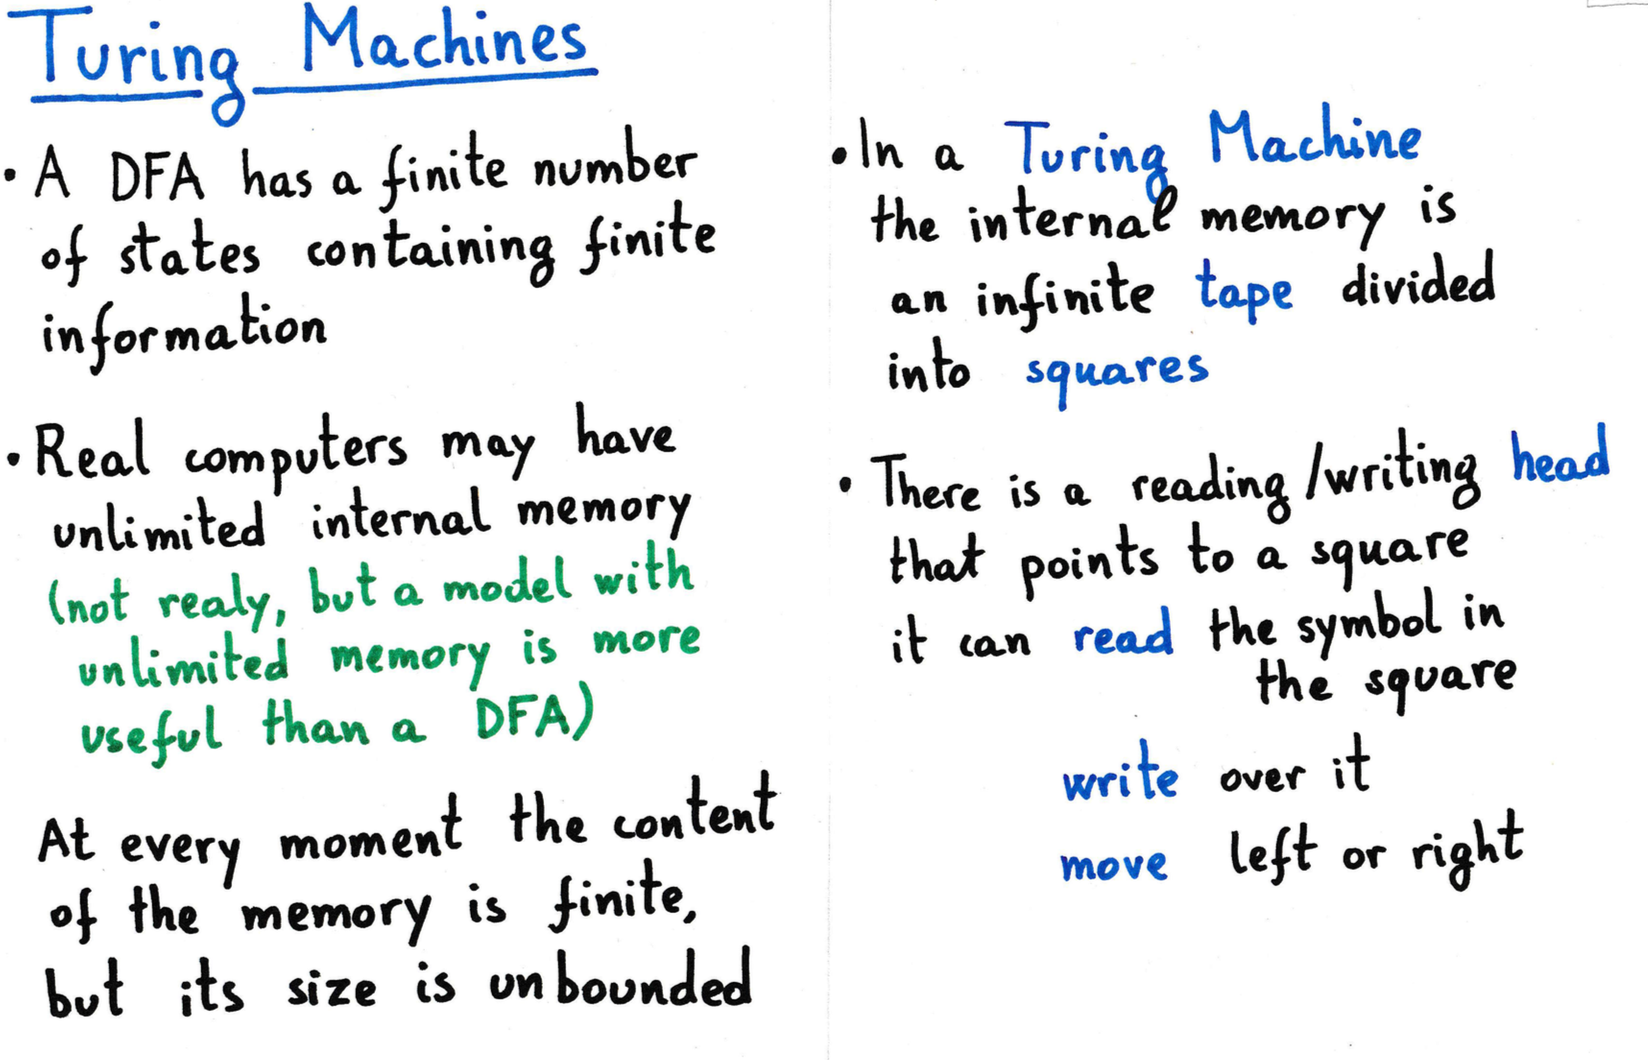 Turing Machines
• A DFA has a finite number
of states containing finite
information
• Real computers may have
unlimited internal memory
(not realy, but a model with
unlimited memory is more
useful than a DFA)
At every moment the content
of the memory is finite,
but its size is unbounded
• In a Turing Machine
the internal memory is
an infinite tape divided
into squares
• There is a reading/writing head
that points to a square
it can read the symbol in
the square
write over it
move left or right